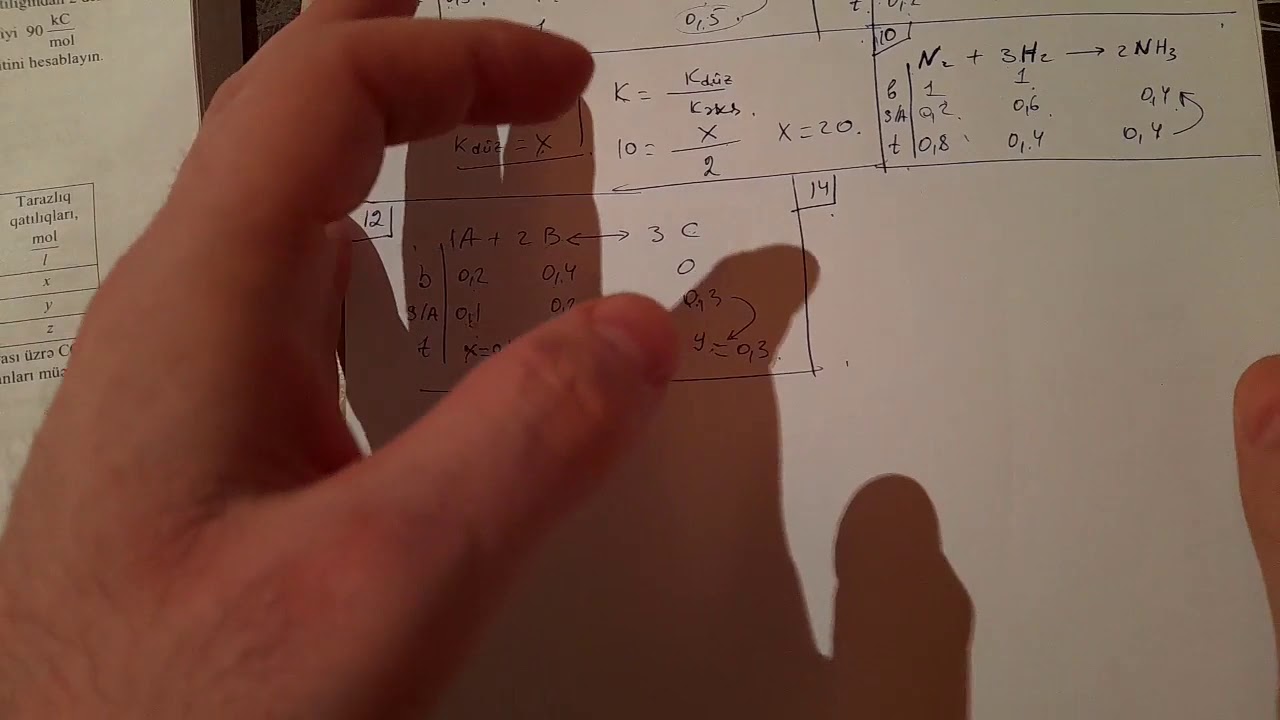 iyi 90 kC/mol
tini hesablayın.
Tarazlıq
qatılıqları,
mol
l
x
y
z
ası üzrə
0,5
K = Kdüz / Kəks.
Kdüz = x
10 = x / 2 x = 20.
10
N2 + 3H2 → 2NH3
b 1 1
s/A 0,2 0,6 0,4
t 0,8 0,4 0,4
12
1A + 2B ↔ 3C
b 0,2 0,4 0
s/A 0,1 0,3
t y = 0,3
14